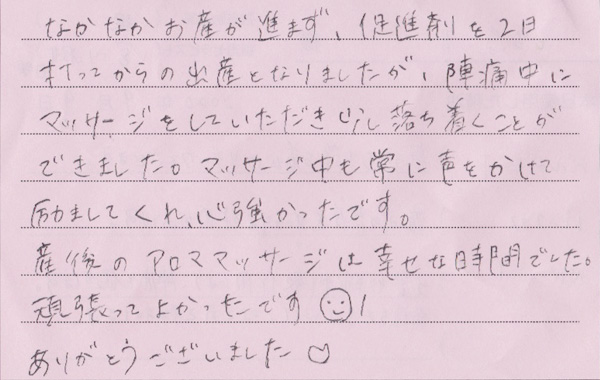 なかなかお産が進まず、促進剤を2日
打ってからの出産となりましたが、陣痛中に
マッサージをしていただき少し落ち着くことが
できました。マッサージ中も常に声をかけて
励ましてくれ、心強かったです。
産後のアロママッサージは幸せな時間でした。
頑張ってよかったです☺!
ありがとうございました♡